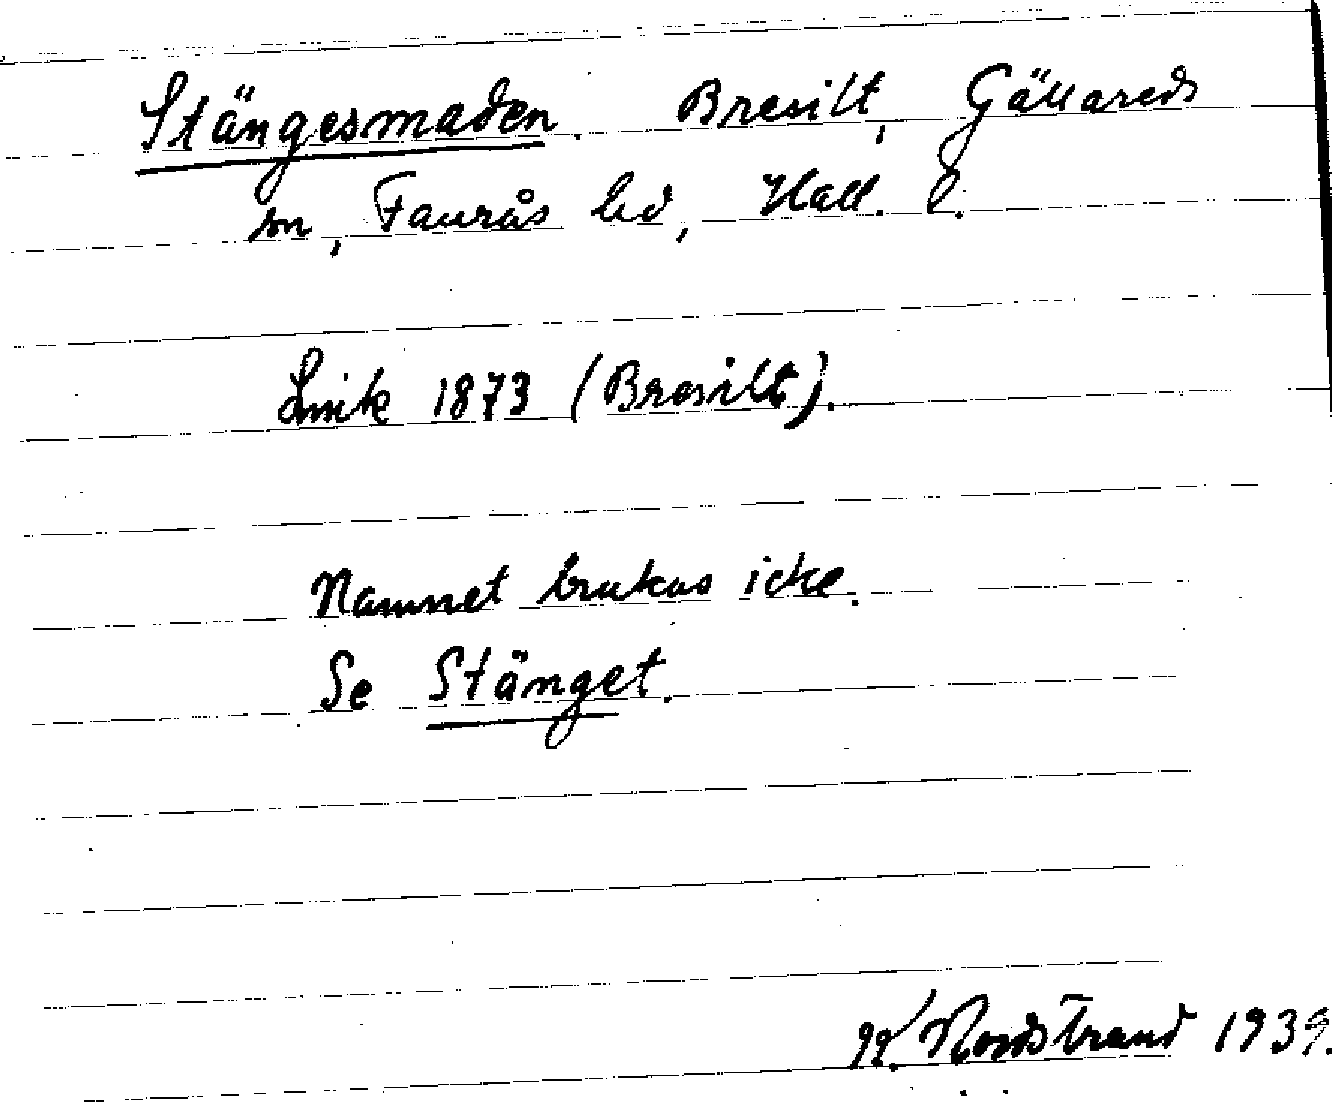 Stängesmaden. Bresilt, Gällareds
sn, Faurås hd, Hall. l.
Lmsk 1873 (Bresilt).
Namnet brukas icke.
Se Stänget.
Nordstrand 1939.